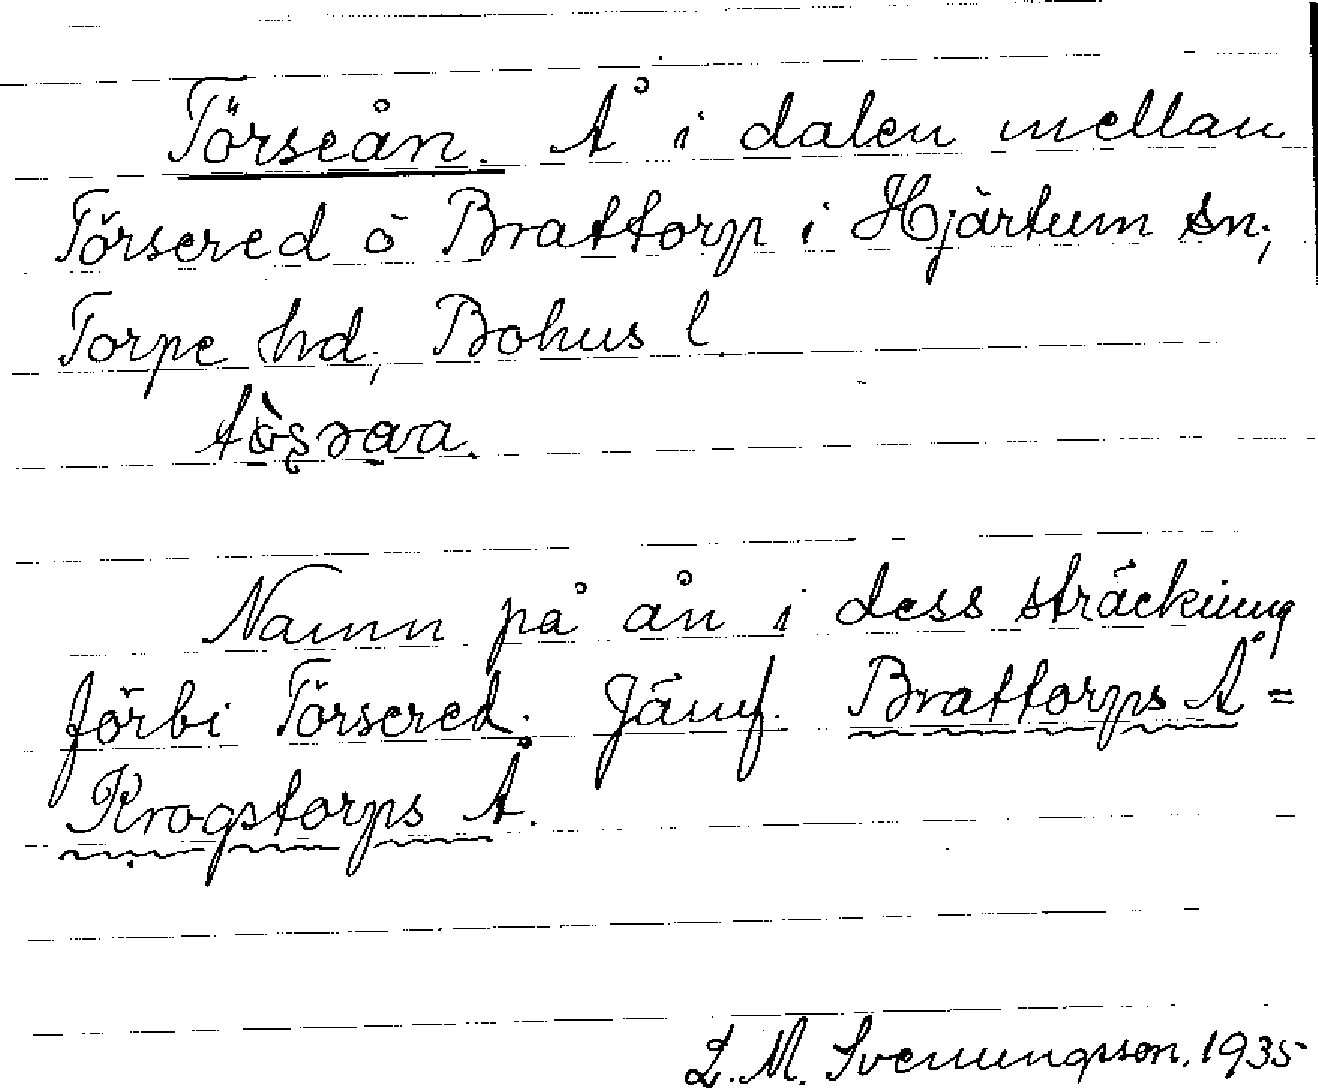 Törseån. Å i dalen mellan
Törsered ö Brattorp i Hjärtum sn;
Torpe hd, Bohus l.
Namn på ån i dess sträckning
förbi Törsered. Jämf. Brattorps Å =
Krogstorps Å.
L. M. Svenungsson. 1935